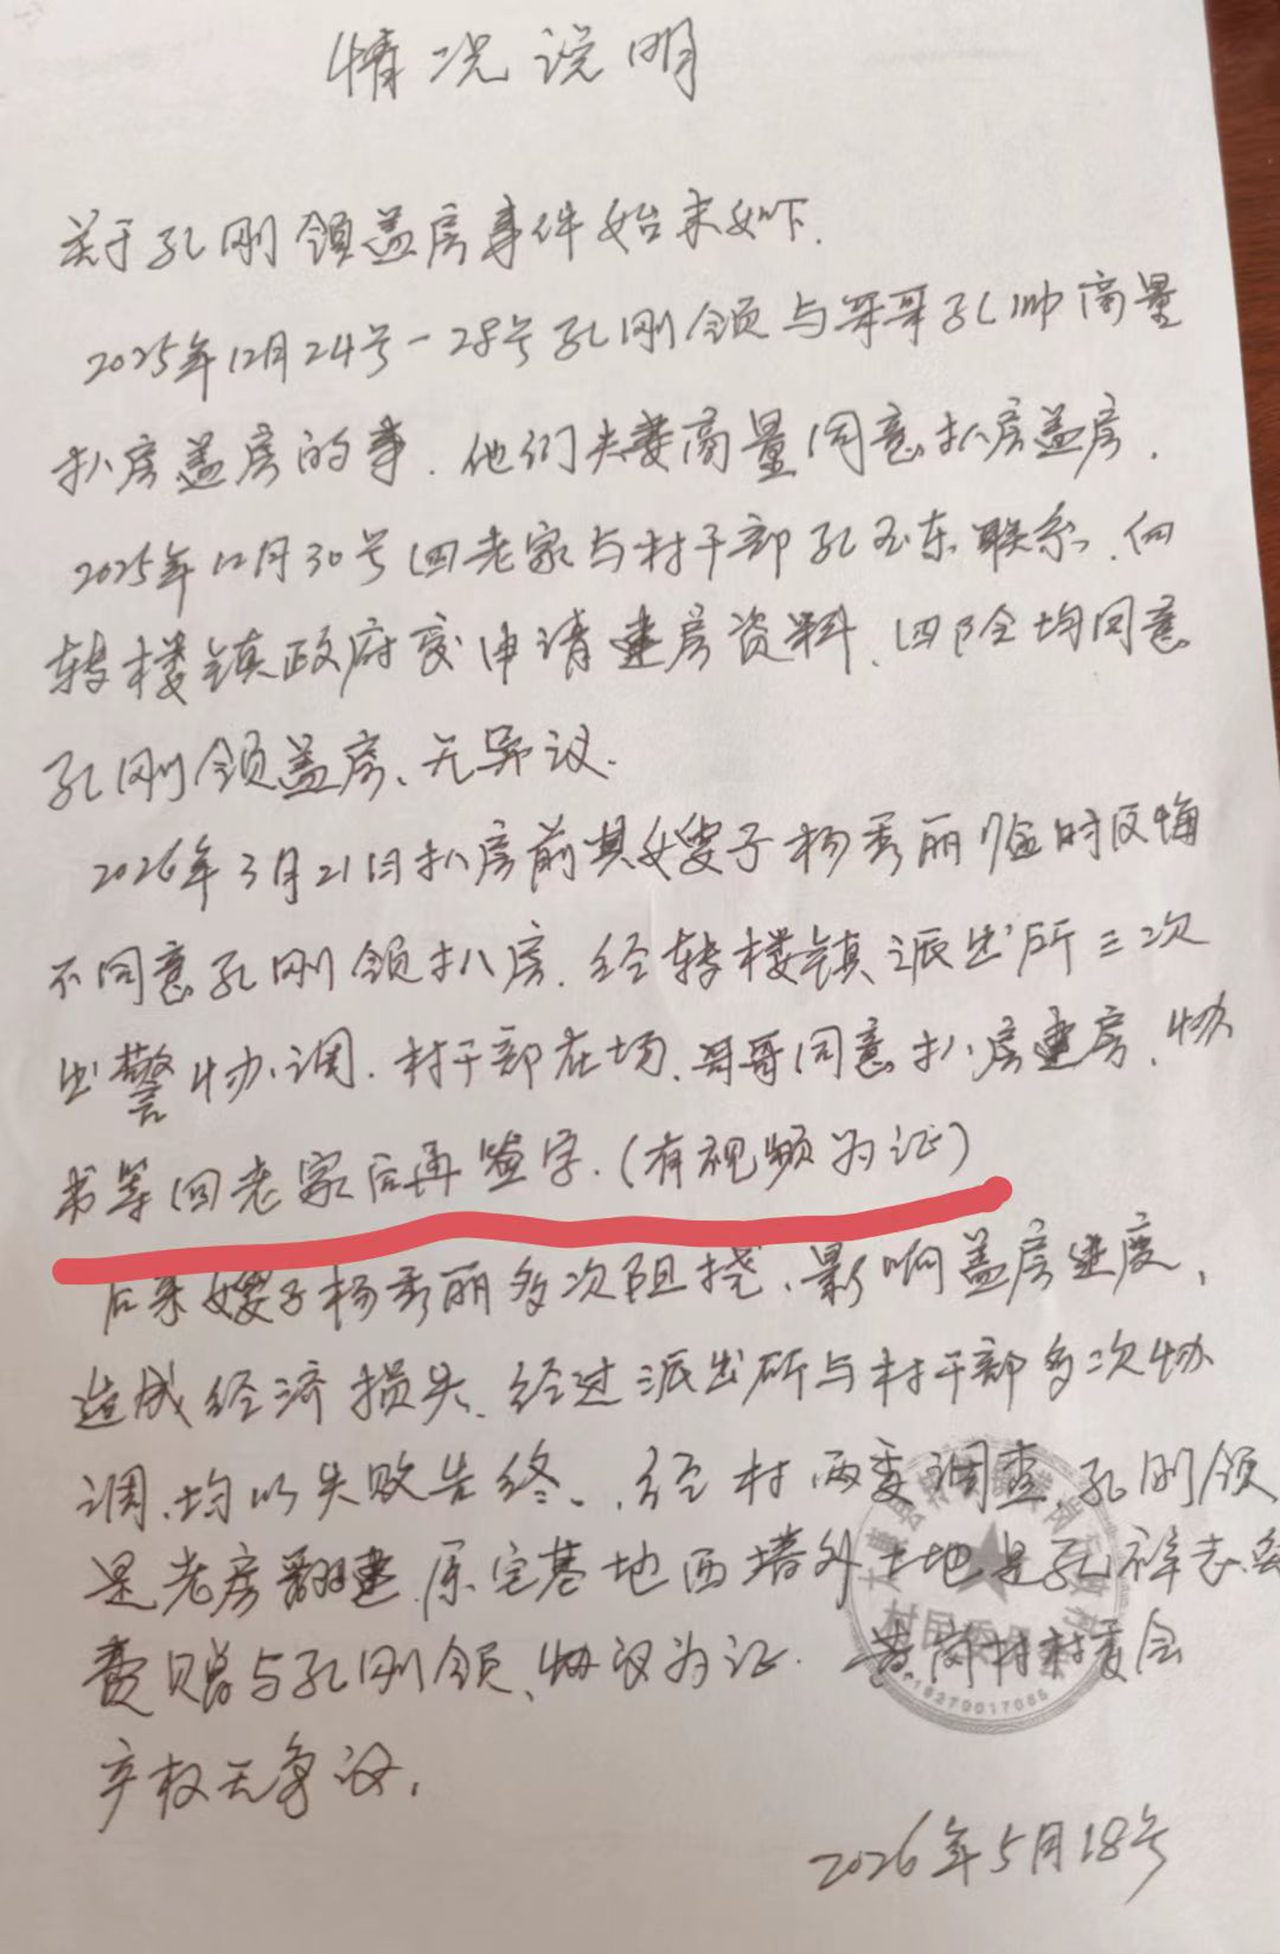 情况说明
关于孔刚领盖房事件始末如下.
2025年12月24号-28号孔刚领与哥哥孔帅商量
扒房盖房的事.他们夫妻商量同意扒房盖房.
2025年12月30号回老家与村干部孔玉东联系、向
转楼镇政府交申请建房资料、四邻均同意
孔刚领盖房、无异议.
2026年3月21日扒房前其嫂子杨秀丽临时反悔
不同意孔刚领扒房.经转楼镇派出所三次
出警协调.村干部在场、哥哥同意扒房建房、协
书等回老家后再签字.(有视频为证)
后来嫂子杨秀丽多次阻挠、影响盖房进度,
造成经济损失、经过派出所与村干部多次协
调、均以失败告终.、经村两委调查、孔刚领
是老房翻建.原宅基地西墙外土地是孔祥志
费赠与孔刚领、协议为证. 岗村村委会
产权无争议.
村民委员
19279017065
2026年5月18号